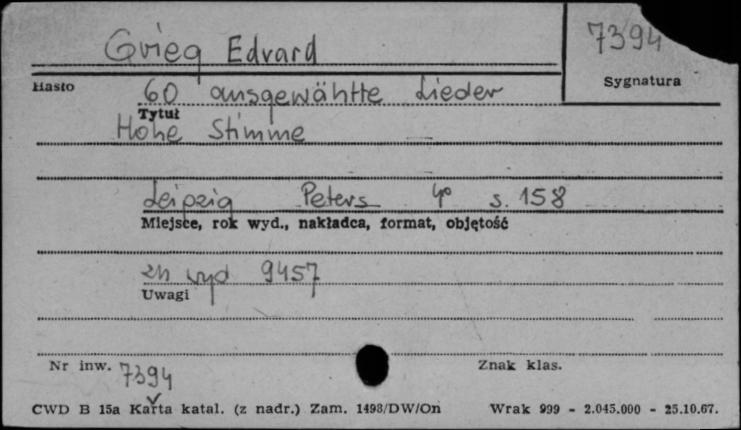 Grieg Edvard
7394
Hasło
Sygnatura
60 ausgewählte Lieder
Tytuł
Hohe Stimme
Leipzig Peters 4° s. 158
Miejsce, rok wyd., nakładca, format, objętość
zn wyd 9457
Uwagi
Nr inw. 7394
Znak klas.
CWD B 15a Karta katal. (z nadr.) Zam. 1493/DW/On Wrak 999 - 2.045.000 - 25.10.67.